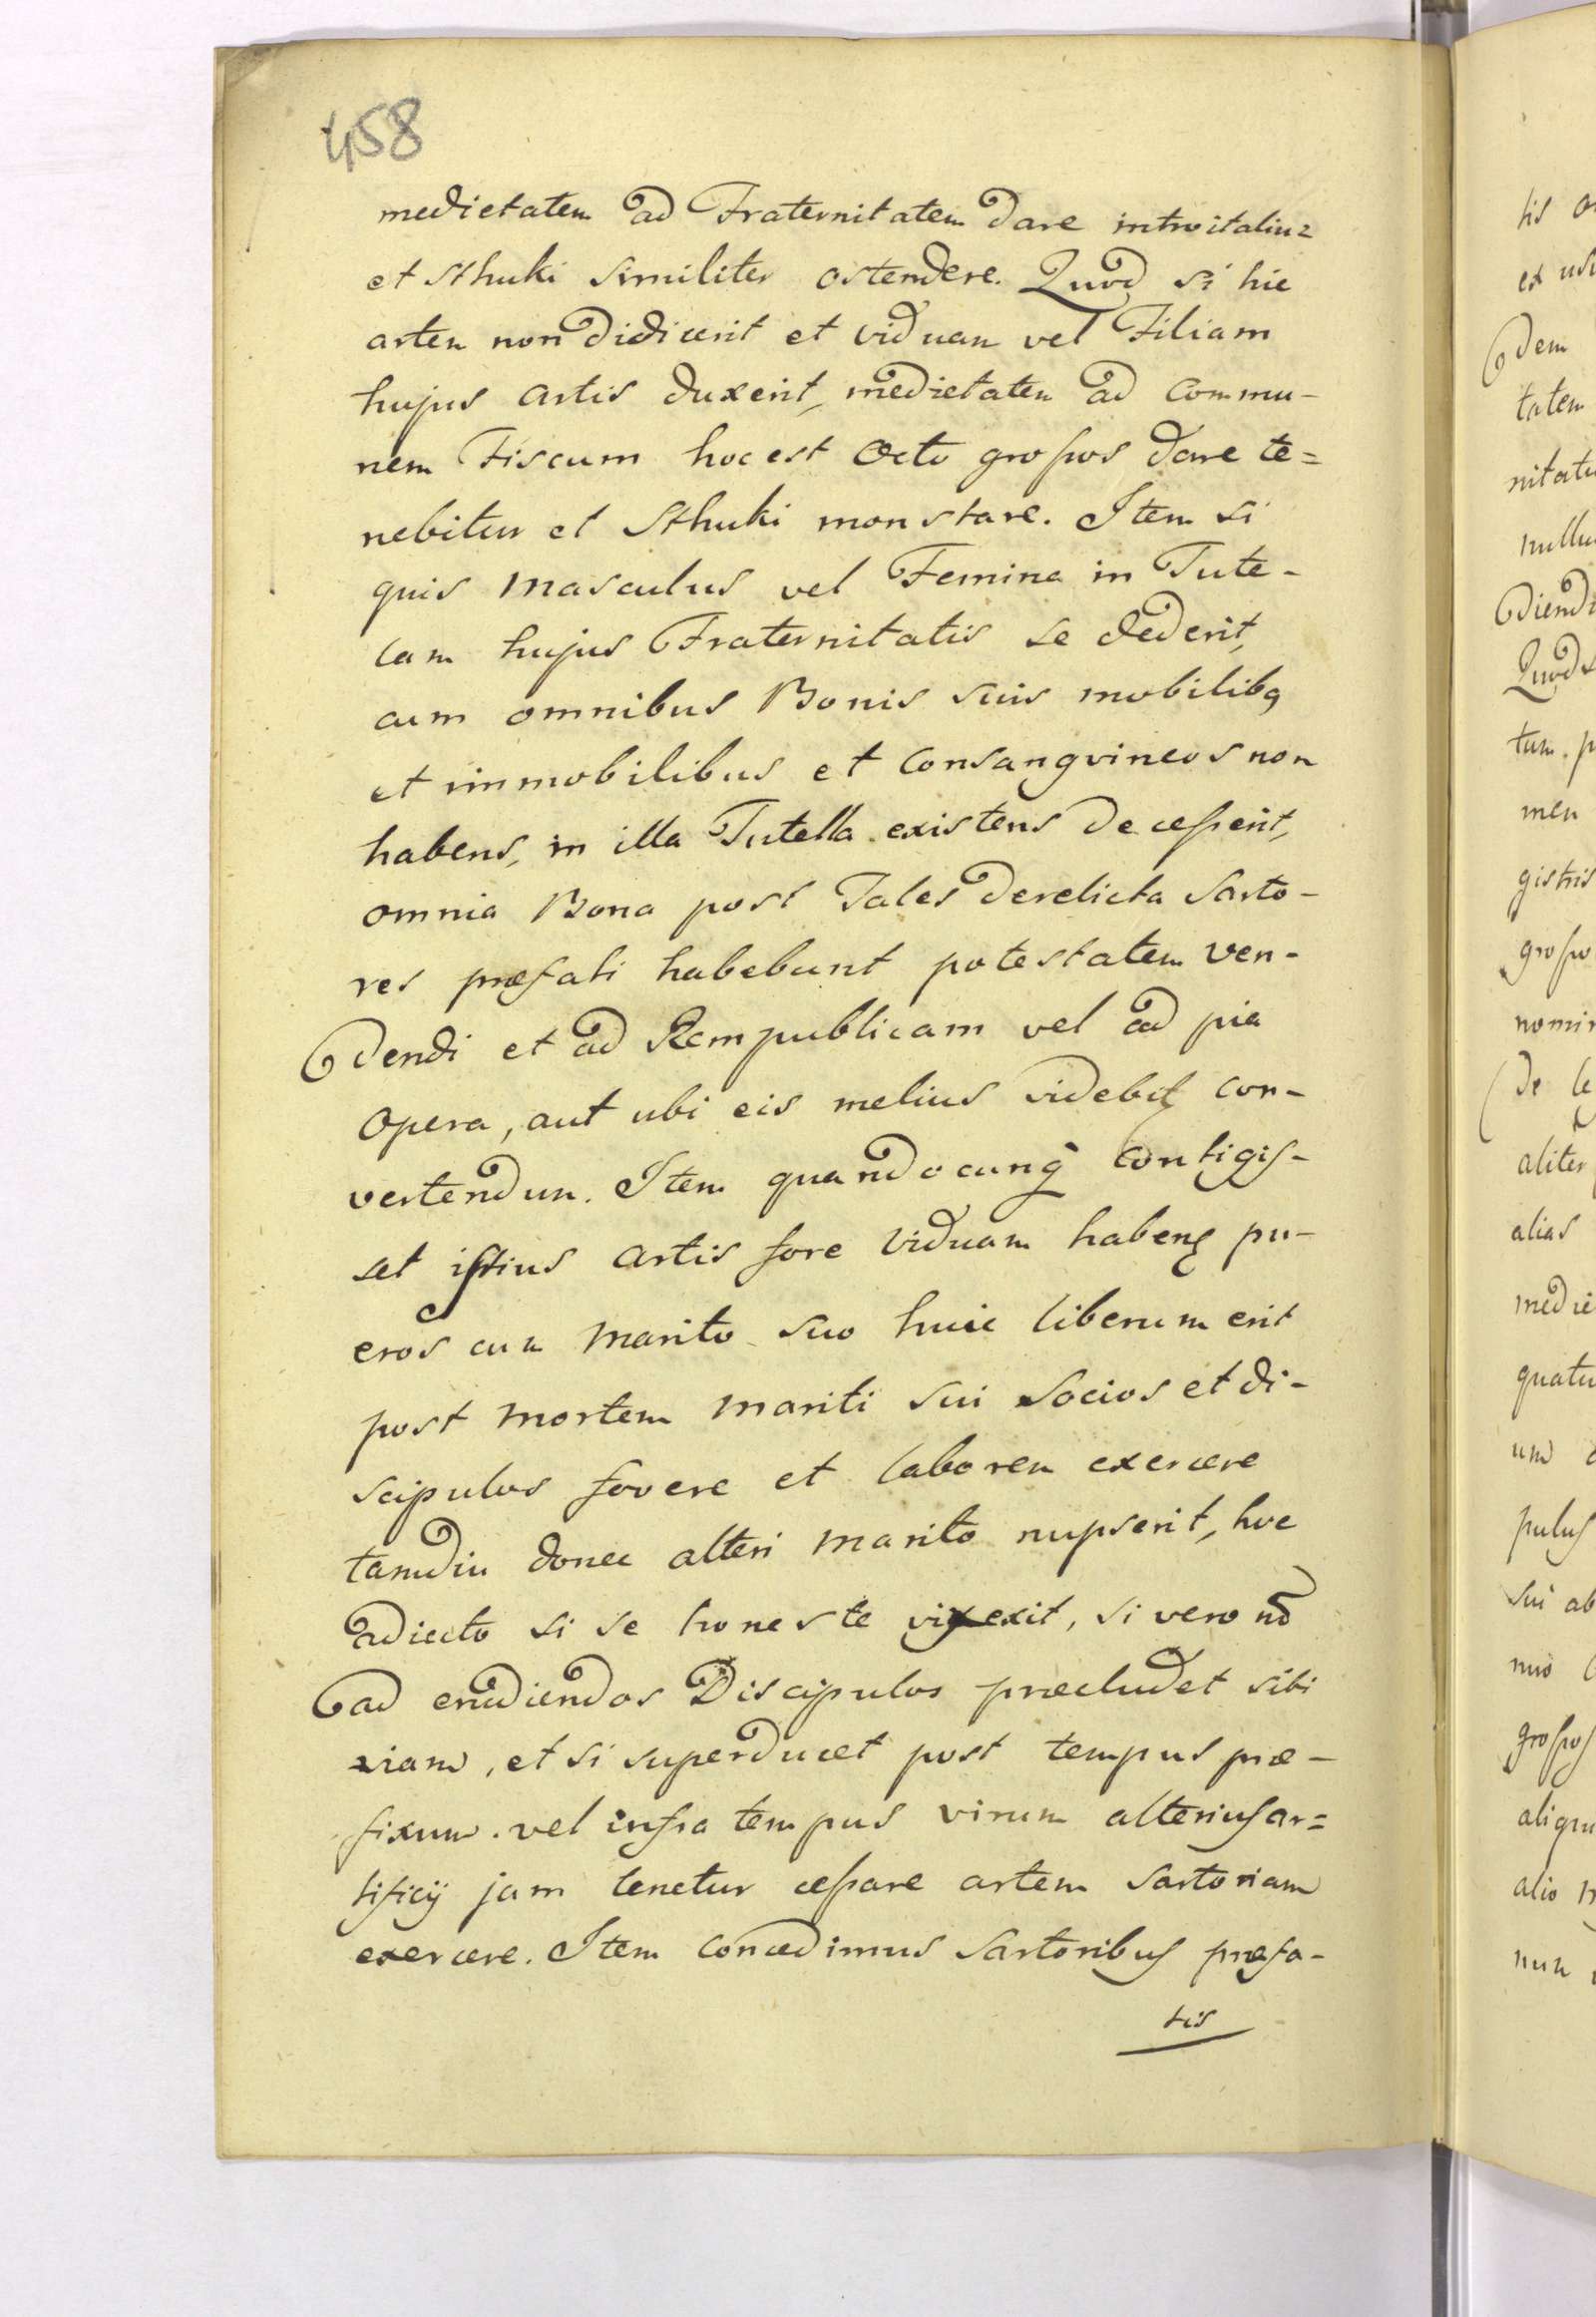 458
medietatem ad Fraternitatem dare introitaliuz
et Sthuki similiter ostendere. Quod si hic
artem non didicerit et viduam vel Filiam
hujus artis duxerit, medietatem ad commu-
nem Fiscum hoc est octo grossos dare te=
nebitur et Sthuki monstrare. Item si
quis masculus vel Femina in Tute-
lam hujus Fraternitatis se dederit,
cum omnibus Bonis suis mobilibq
et immobilibus et consangvineos non
habens, in illa Tutella existens decesserit,
omnia Bona post Tales derelicta Sarto-
res præfati habebunt potestatem ven-
dendi et ad Rempublicam vel ad pia
opera, aut ubi eis melius videbit con-
vertendum. Item quandocunq contigis-
set istius artis fore viduam habens pu-
eros cum marito suo huic liberum erit
post mortem mariti sui socios et di-
scipulos fovere et laborem exercere
tamdiu donec alteri marito nupserit, hoc
adiecto si se honeste vixexit, si vero nō
ad erudiendos Discipulos præcludet sibi
viam, et si superducet post tempus præ-
fixum. vel infra tempus virum alterius ar=
tificij jam tenetur cessare artem sartoriam
exercere. Item concedimus Sartoribus præfa-
tis
tis
dem
tatem
gistris
aliter
alias